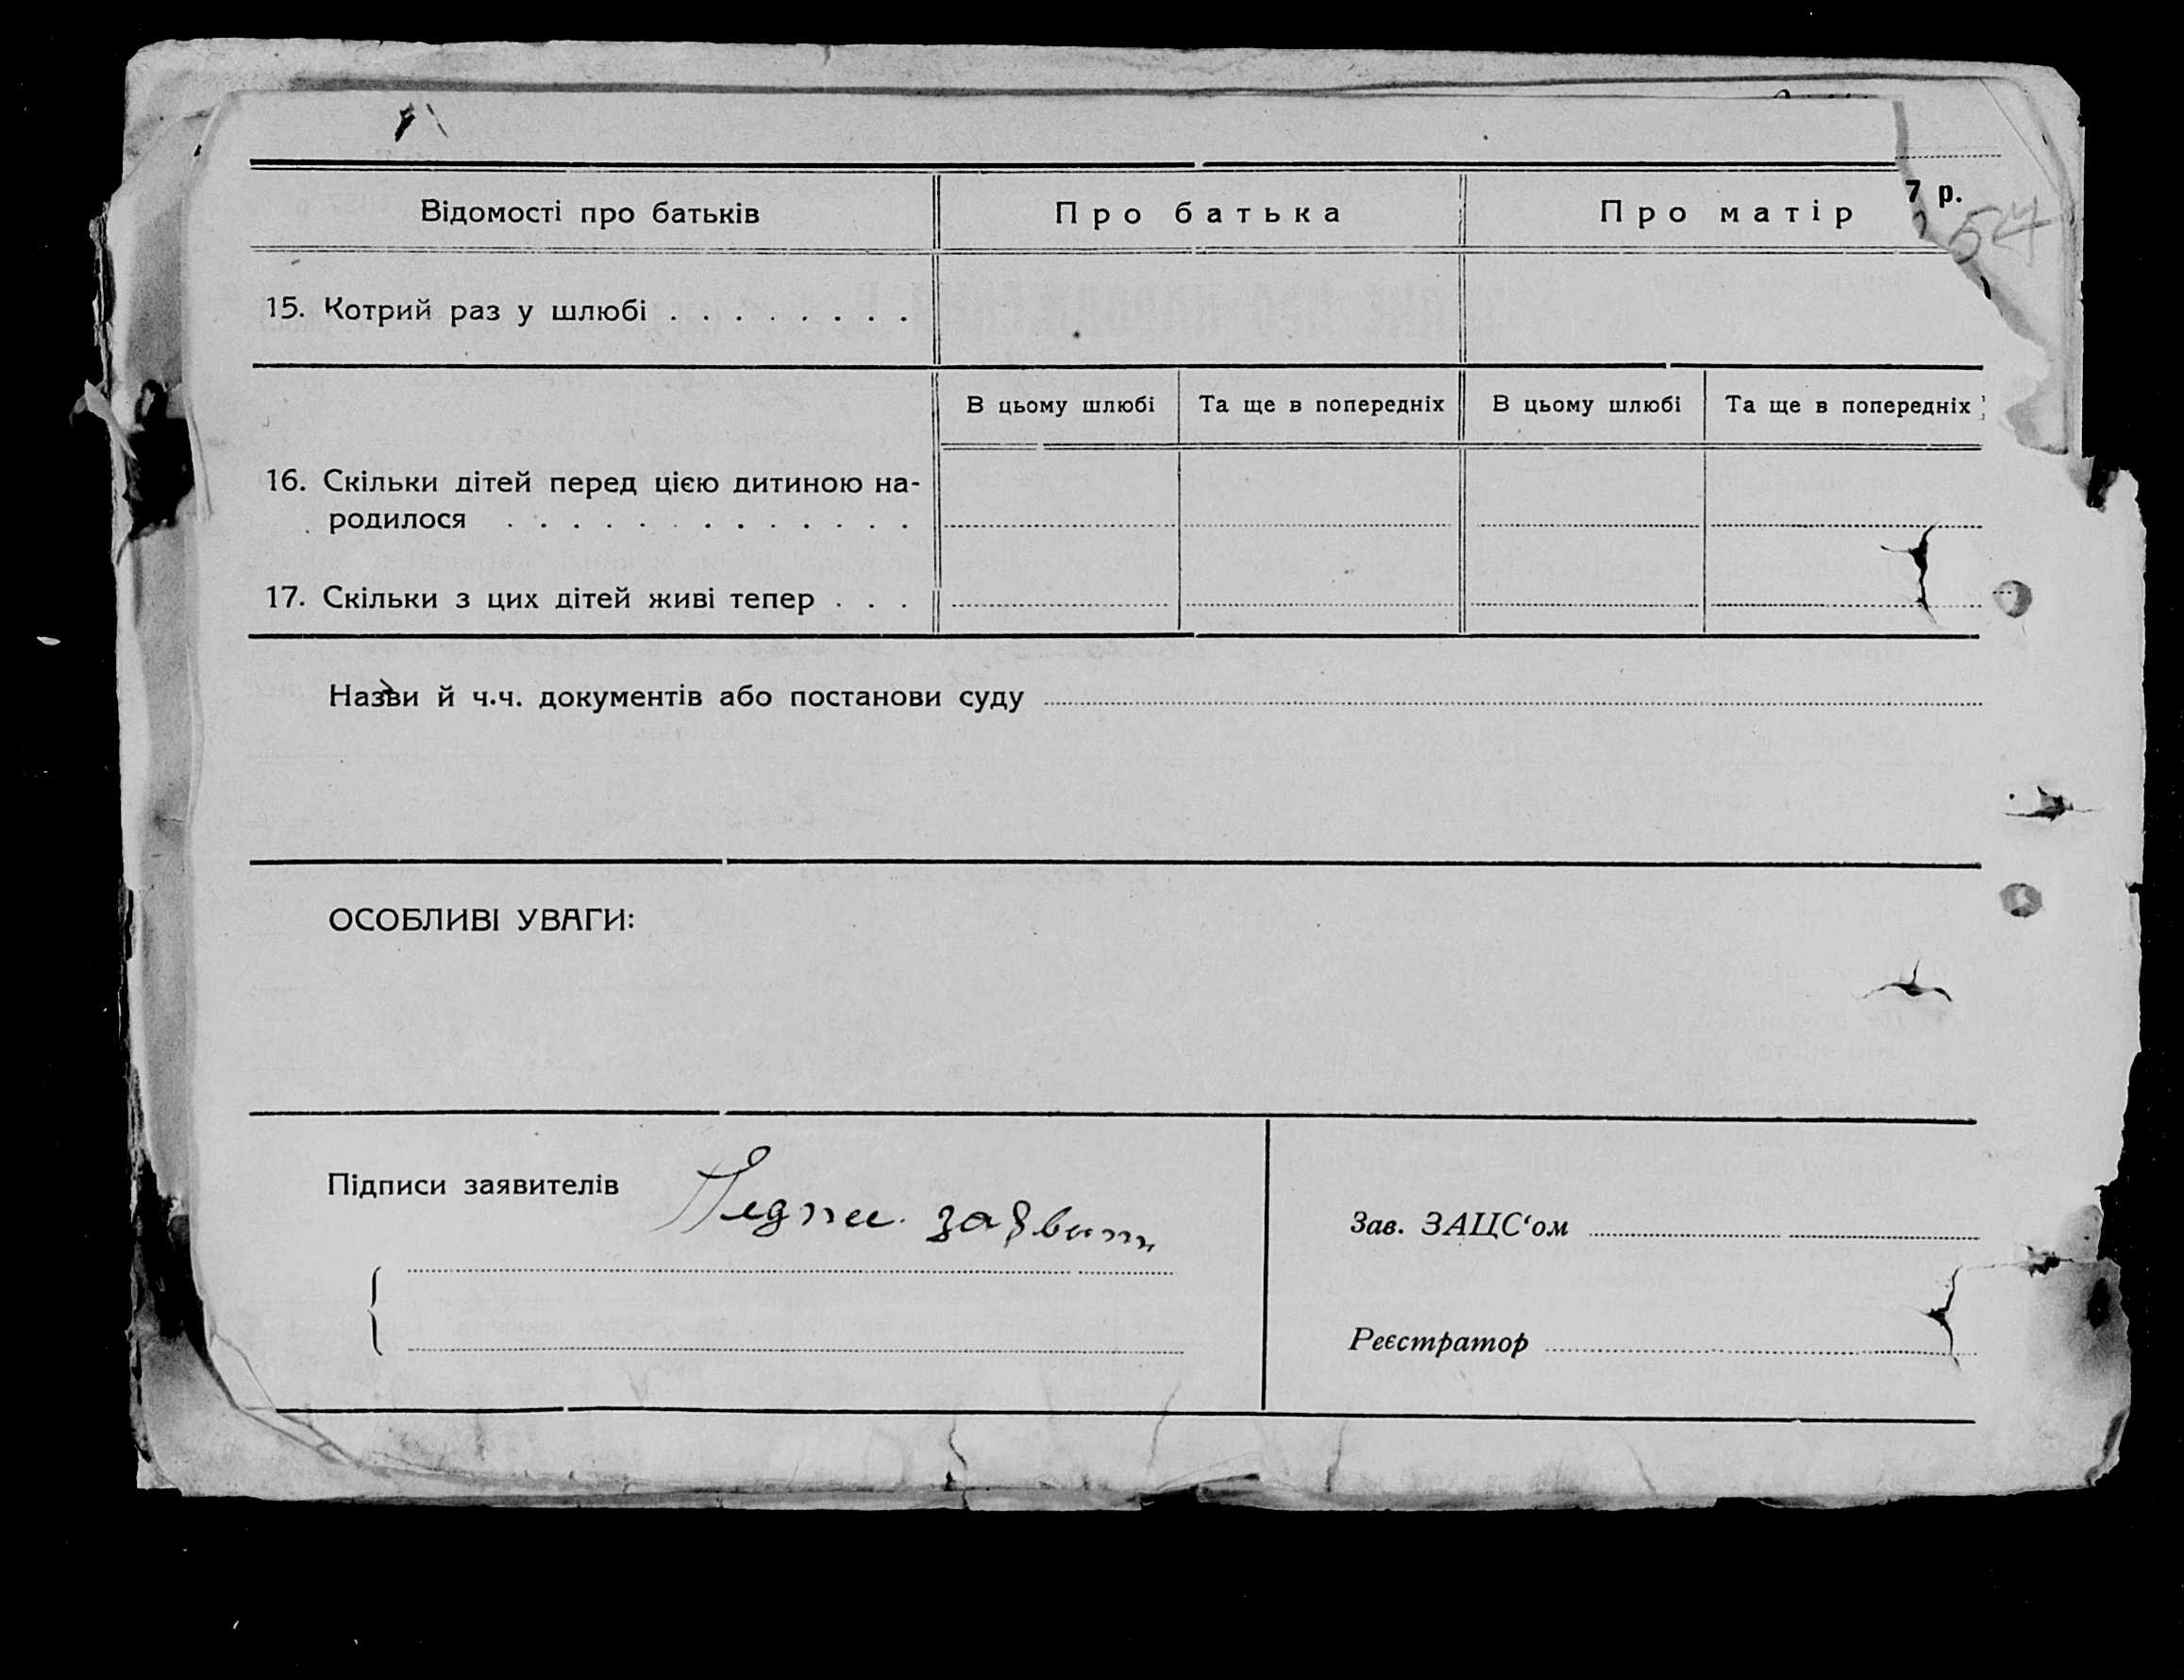 7 р.
54
Відомості про батьків Про батька Про матір
15. Котрий раз у шлюбі . . . . . . . .
В цьому шлюбі Та ще в попередніх В цьому шлюбі Та ще в попередніх
16. Скільки дітей перед цією дитиною на-
родилося . . . . . . . . . . . . .
17. Скільки з цих дітей живі тепер . . .
Назви й ч.ч. документів або постанови суду
ОСОБЛИВІ УВАГИ:
Підписи заявителів
Зав. ЗАЦС‘ом
Реєстратор